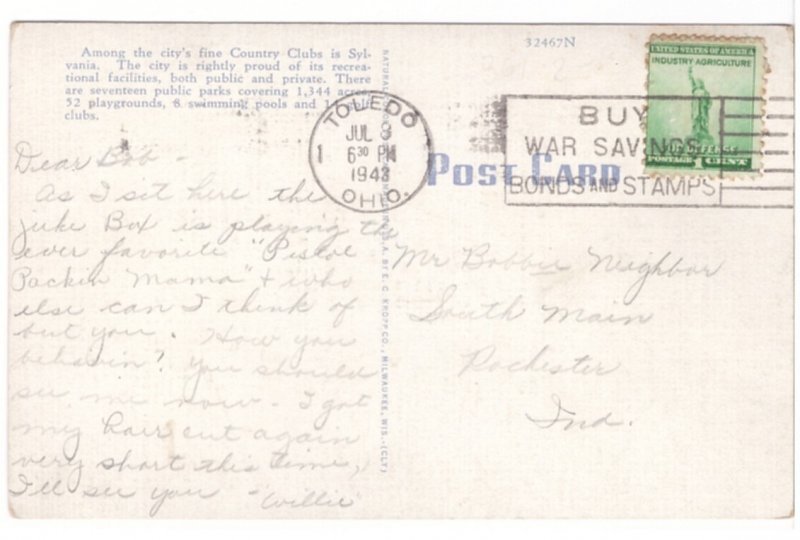 Among the city's fine Country Clubs is Syl-
vania. The city is rightly proud of its recrea-
tional facilities, both public and private. There
are seventeen public parks covering 1,344 acres,
52 playgrounds, 8 swimming pools and
clubs.
32467N
UNITED STATES OF AMERICA
INDUSTRY AGRICULTURE
FOR DEFENSE
POSTAGE 1 CENT
TOLEDO
JUL 8
1 630 PM
1943
OHIO.
BUY
WAR SAVINGS
BONDS AND STAMPS
POST CARD
Dear Bob -
As I sit here the
juke Box is playing the
ever favorite "Pistol
Packin Mama" + who
else can I think of
but you. How you
behavin? You should
see me now. I got
my hair cut again
very short this time,
I'll see you "Willie"
Mr Bobbie Neighbor
South Main
Rochester
Ind.
E. C. KROPP CO., MILWAUKEE, WIS. (CLT)